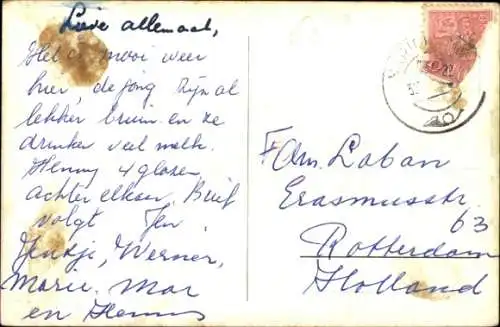 Lieve allemaal,
Het is mooi weer
hier, de jong zijn al
lekker bruin en ze
drinken veel melk.
Henny 4 glazen
achter elkaar. Brief
volgt Jen
Jentje, Werner,
Marie. Mar
en Hennie
Fam. Laban
Erasmusstr.
63
Rotterdam
Holland